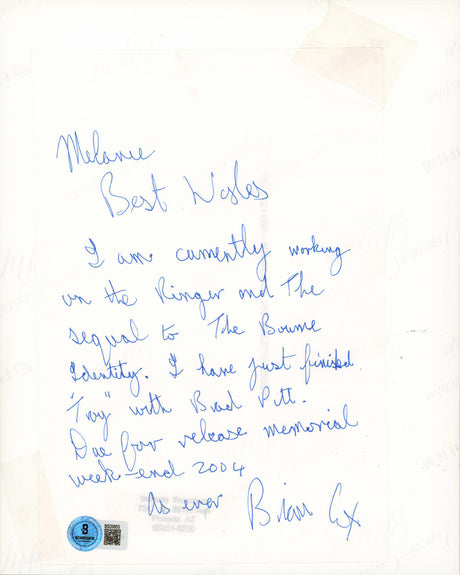 Melanie
Best Wishes
I am currently working
on the Ringer and The
sequal to The Bourne
Identity. I have just finished
"Troy" with Brad Pitt.
Due for release memorial
week-end 2004
As ever Brian Cox
Phoenix AZ
B